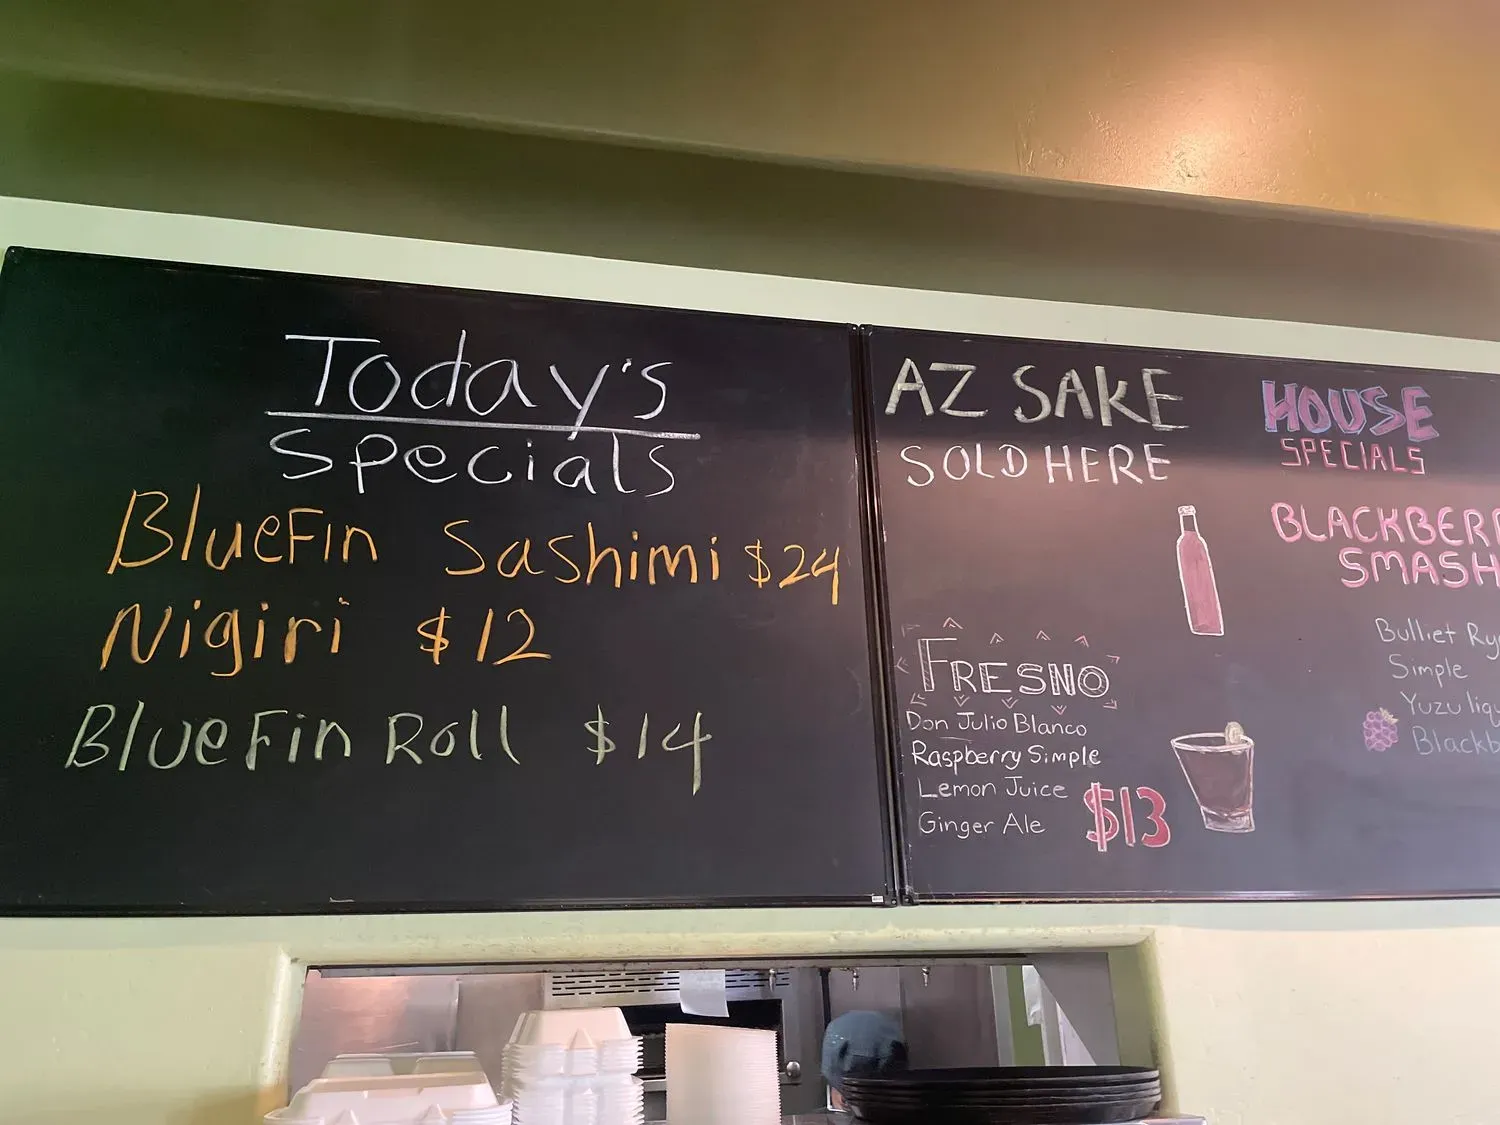 Today's
Specials
BlueFin Sashimi $24
Nigiri $12
BlueFin Roll $14
AZ SAKE
SOLD HERE
FRESNO
Don Julio Blanco
Raspberry Simple
Lemon Juice
Ginger Ale
$13
HOUSE
SPECIALS
BLACKBERR
SMASH
Bulliet Ry
Simple
Yuzu liq
Blackb